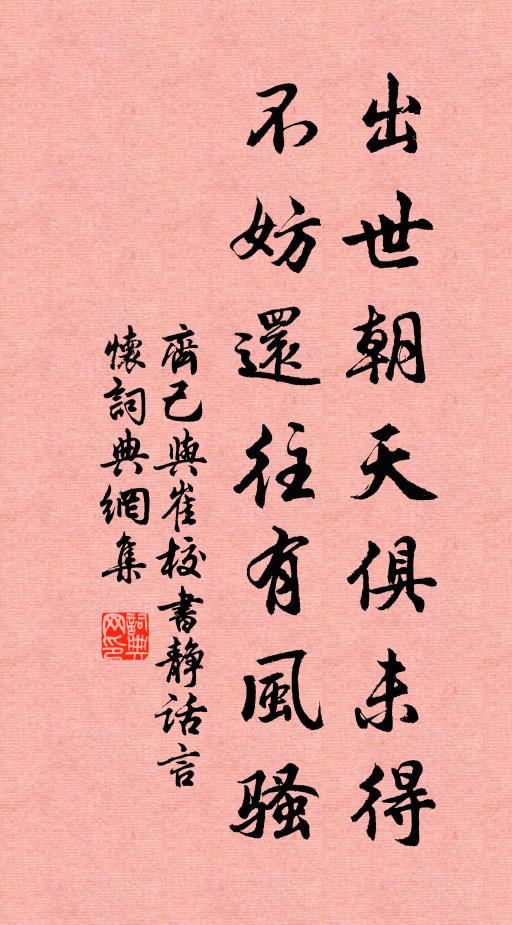 出世朝天俱未得
不妨還往有風騷
齊己與崔校書静话言
懷詞典網集
詞典
网印